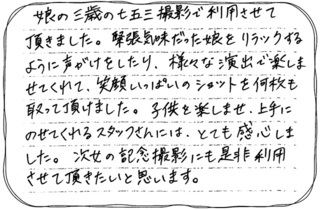 娘の三歳の七五三撮影で利用させて
頂きました。緊張気味だった娘をリラックする
ように声がけをしたり、様々な演出で楽しま
せてくれて、笑顔いっぱいのショットを何枚も
取って頂けました。子供を楽しませ、上手に
のせてくれるスタッフさんには、とても感心しま
した。次女の記念撮影にも是非利用
させて頂きたいと思います。